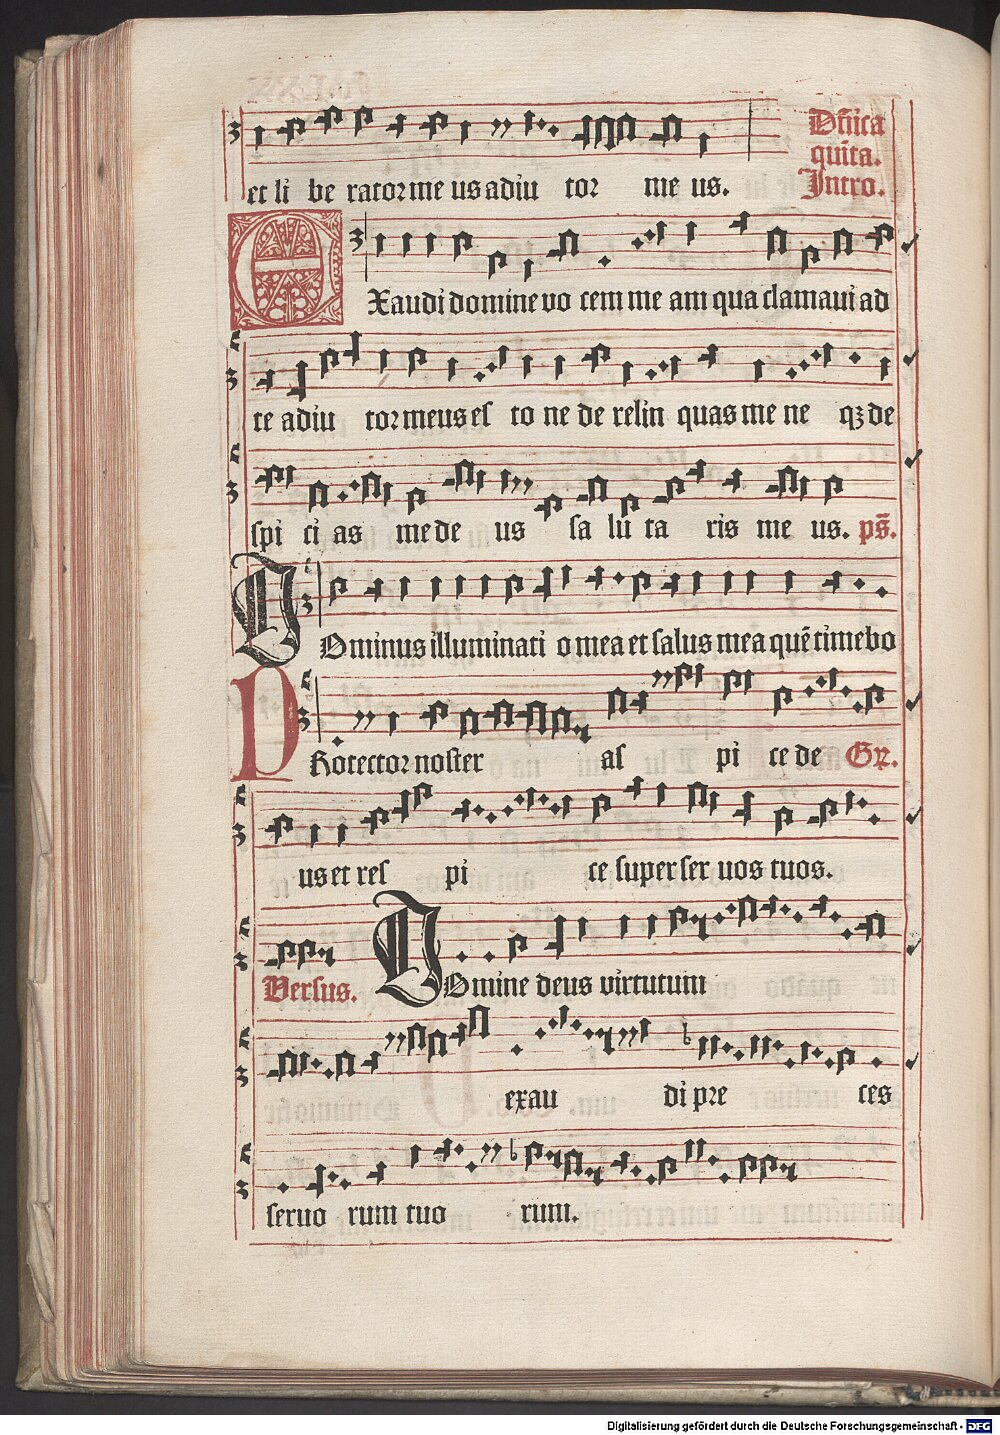 et li be rator me us adiu tor me us. Dn̄ica
quīta.
Intro.
EXaudi domine vo cem me am qua clamaui ad
te adiu tor meus es to ne de relin quas me ne qꝫ de
spi ci as me de us sa lu ta ris me us. ps̄.
DOminus illuminati o mea et salus mea quē timebo
PRotector noster as pi ce de Gꝛ.
us et res pi ce super ser uos tuos.
Versus. DOmine deus virtutum
exau di pre ces
seruo rum tuo rum.
Digitalisierung gefördert durch die Deutsche Forschungsgemeinschaft - DFG